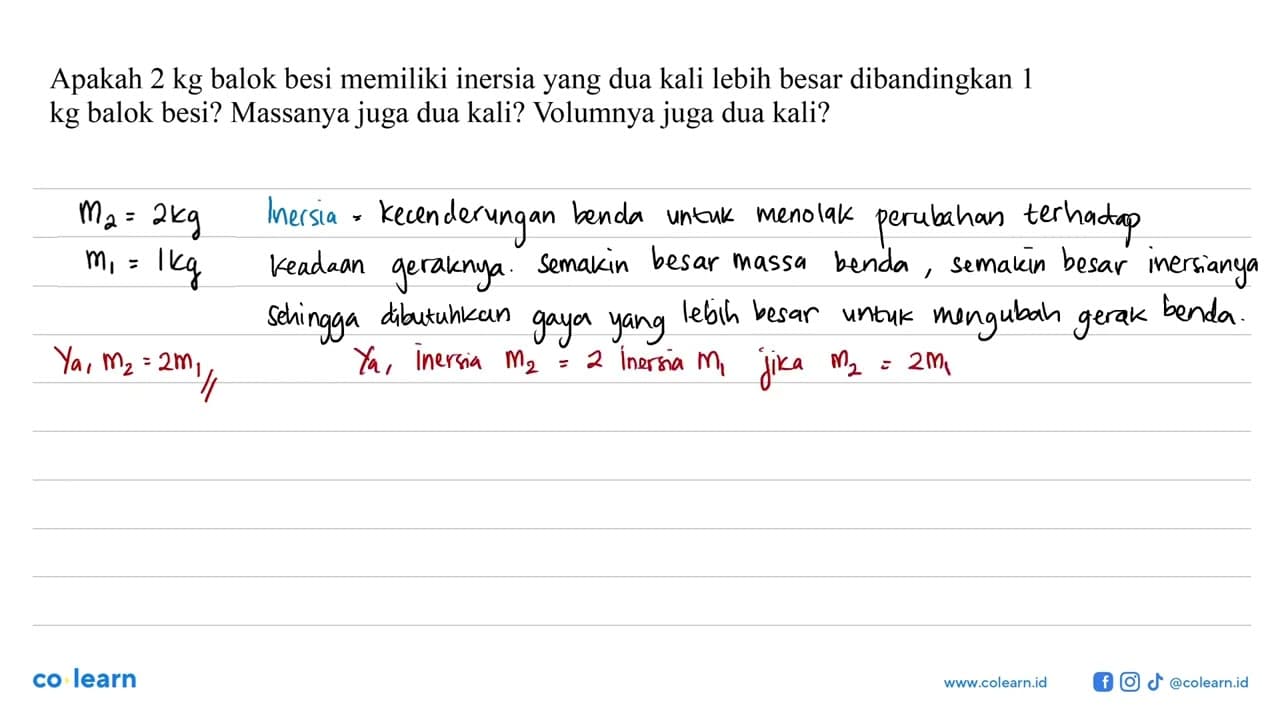 Apakah 2 kg balok besi memiliki inersia yang dua kali lebih besar dibandingkan 1
kg balok besi? Massanya juga dua kali? Volumnya juga dua kali?
m₂ = 2kg
m₁ = 1kg
Inersia = kecenderungan benda untuk menolak perubahan terhadap
keadaan geraknya. Semakin besar massa benda, semakin besar inersianya
sehingga dibutuhkan gaya yang lebih besar untuk mengubah gerak benda.
Ya, m₂ = 2m₁ //
Ya, inersia m₂ = 2 inersia m₁ jika m₂ = 2m₁
co learn
www.colearn.id
@colearn.id